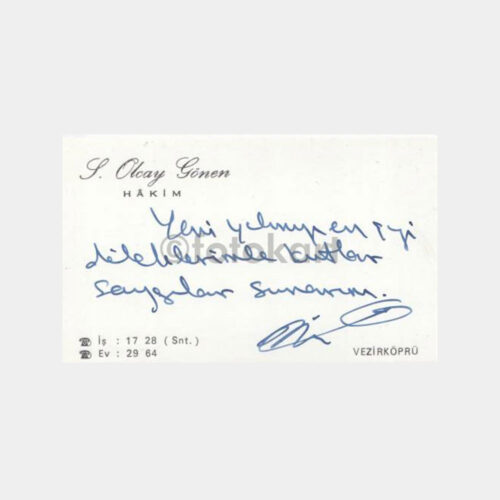 S. Olcay Gönen
HÂKİM
Yeni yılınızı en iyi
dileklerimle kutlar
saygılar sunarım.
©fotokart
☎ İş : 17 28 (Snt.)
☎ Ev : 29 64
VEZİRKÖPRÜ